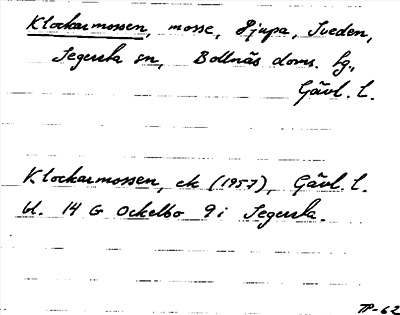 Klockarmossen, mosse, Djupa, Sveden,
Segersta sn, Bollnäs doms. hg.,
Gävl. l.
Klockarmossen, ek (1957), Gävl. l.
bl. 14 G Ockelbo 9 i Segersta.
TP-62